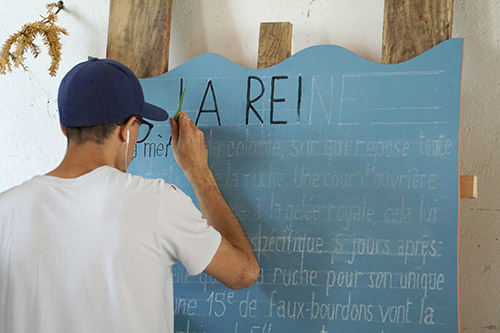 LA REINE
la mère de la colonie, sur qui repose toute
la ruche. Une cour d'ouvrière
à la gelée royale, cela lui
spécifique. 5 jours après
la ruche pour son unique
une 15e de faux-bourdons vont la